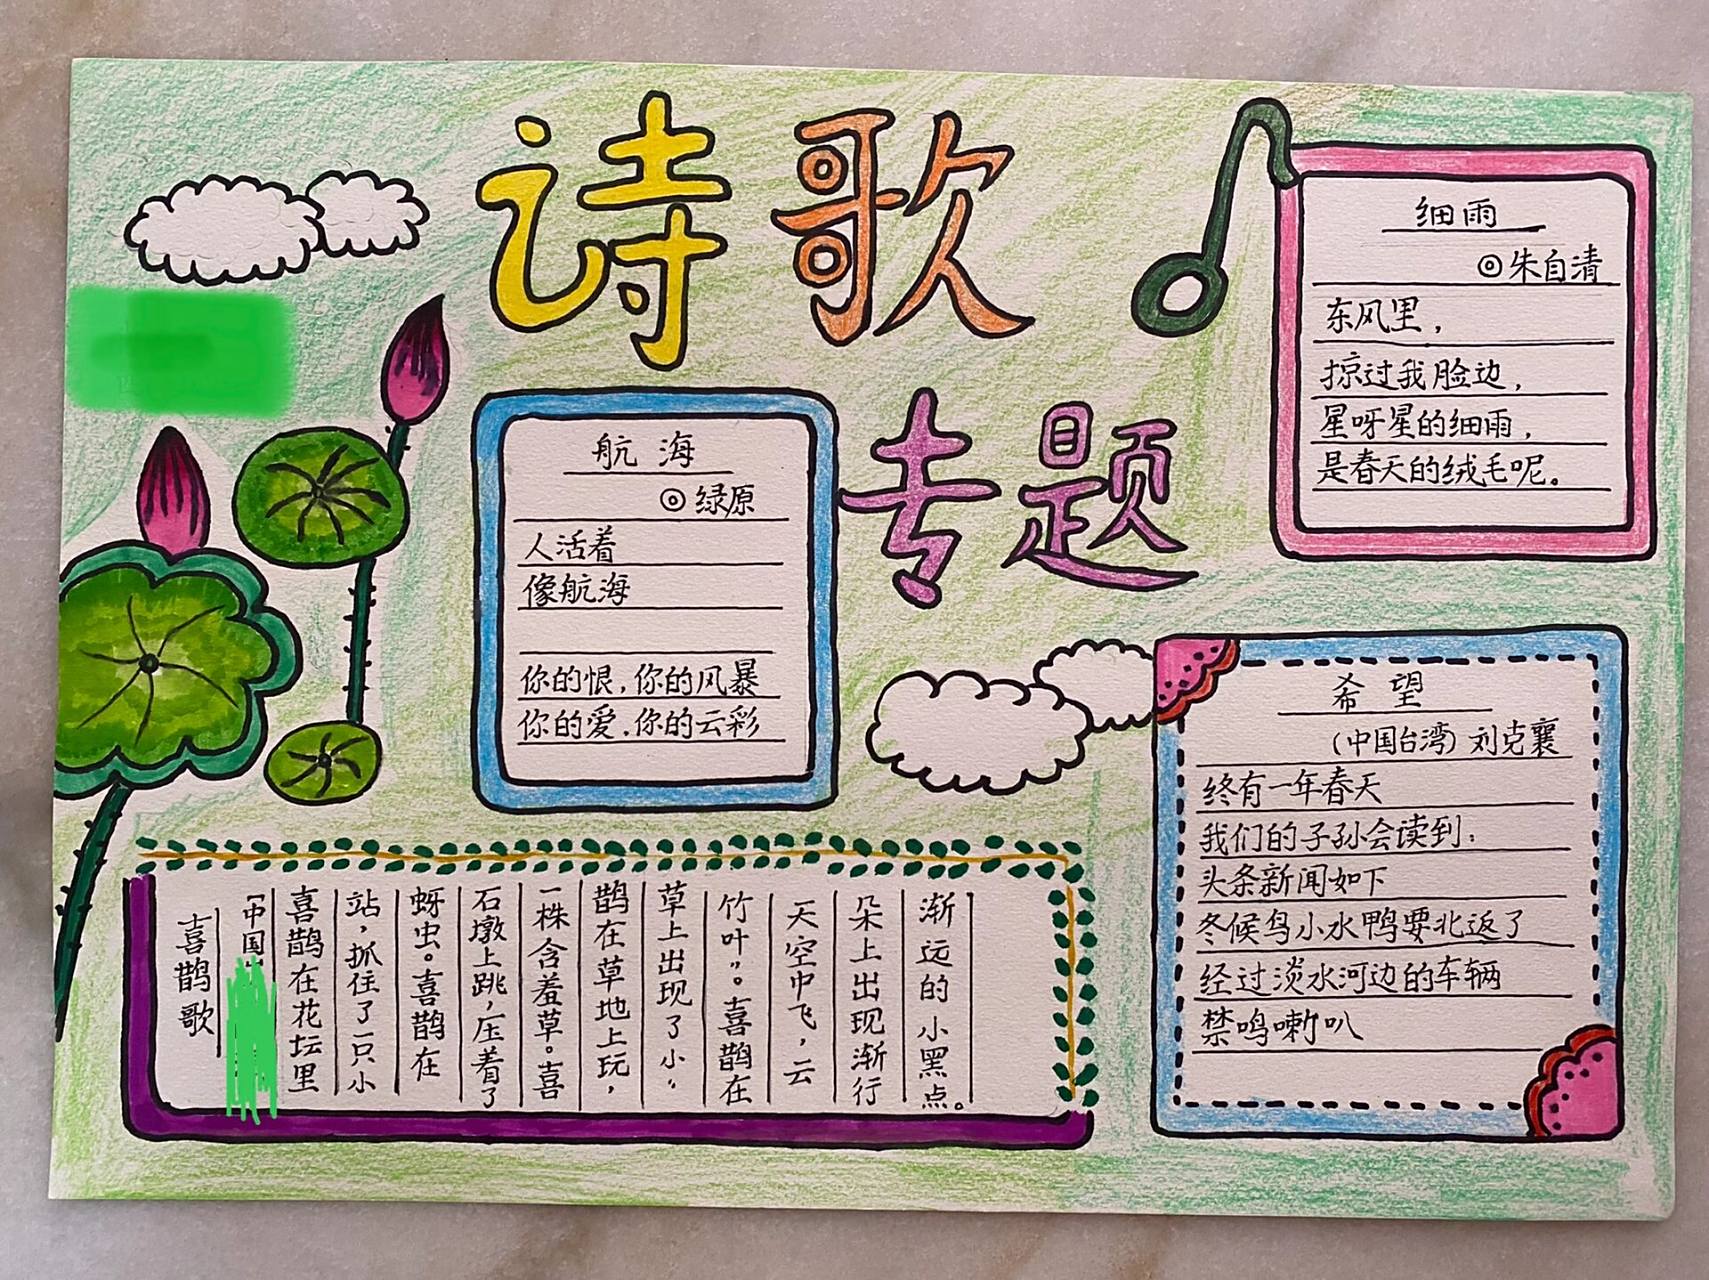 诗歌
专题
细雨
◎朱自清
东风里，
掠过我脸边，
星呀星的细雨，
是春天的绒毛呢。
航海
◎绿原
人活着
像航海
你的恨，你的风暴
你的爱．你的云彩
希望
（中国台湾）刘克襄
终有一年春天
我们的子孙会读到：
头条新闻如下
冬候鸟小水鸭要北返了
经过淡水河边的车辆
禁鸣喇叭
喜鹊歌
「中国
喜鹊在花坛里
站，抓住了一只小
蚜虫。喜鹊在
石墩上跳，压着了
一株含羞草。喜
鹊在草地上玩，
草上出现了小“
竹叶”。喜鹊在
天空中飞，云
朵上出现渐行
渐远的小黑点。